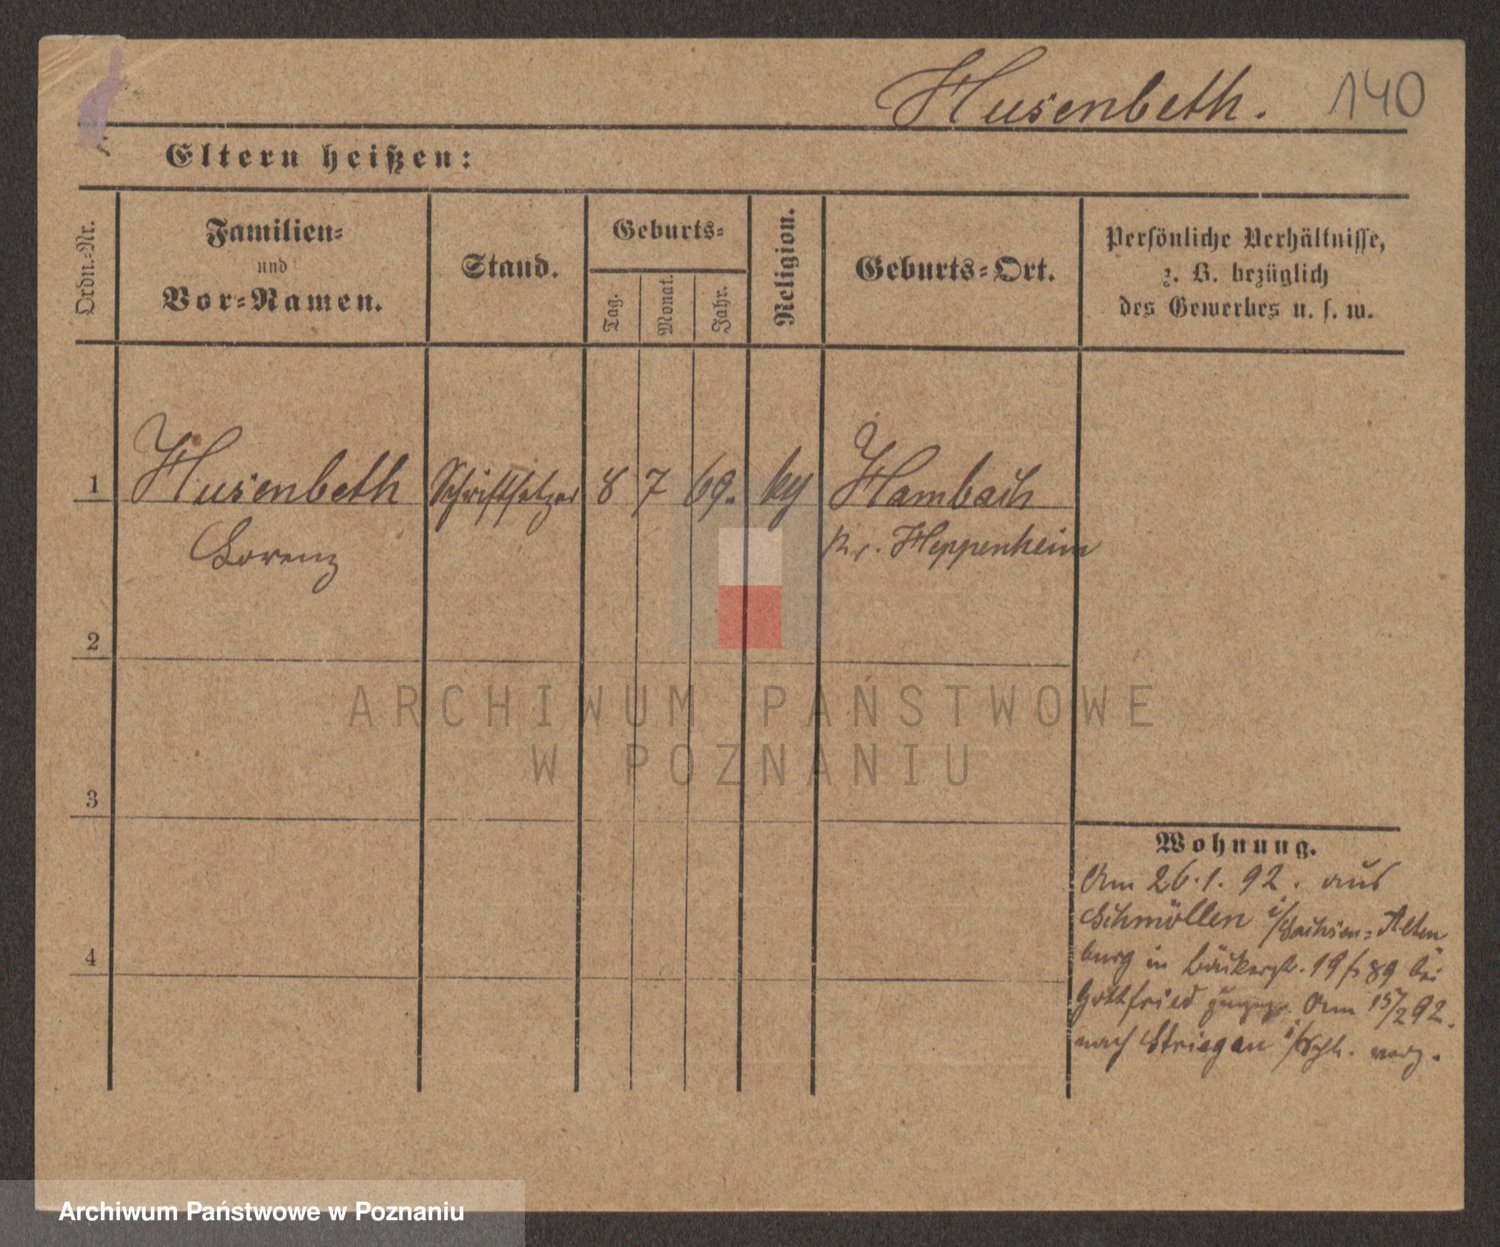 Husenbeth. 140
Eltern heißen:
Ordn.-Nr.
Familien-
und
Vor-Namen.
Stand.
Geburts-
Tag.
Monat.
Jahr.
Religion.
Geburts-Ort.
Persönliche Verhältnisse,
z. B. bezüglich
des Gewerbes u. s. w.
1 Husenbeth Schriftsetzer 8 7 69. Hambach
Lorenz Kr. Heppenheim
2
3
4
Wohnung.
Am 26.1.92. aus
Schmöllen i/Sachsen-Alten
burg in Bäckerstr. 19 bei
Gottfried Am 15/2 92.
nach Striegau i/Schl. verz.
ARCHIWUM PAŃSTWOWE
W POZNANIU
Archiwum Państwowe w Poznaniu